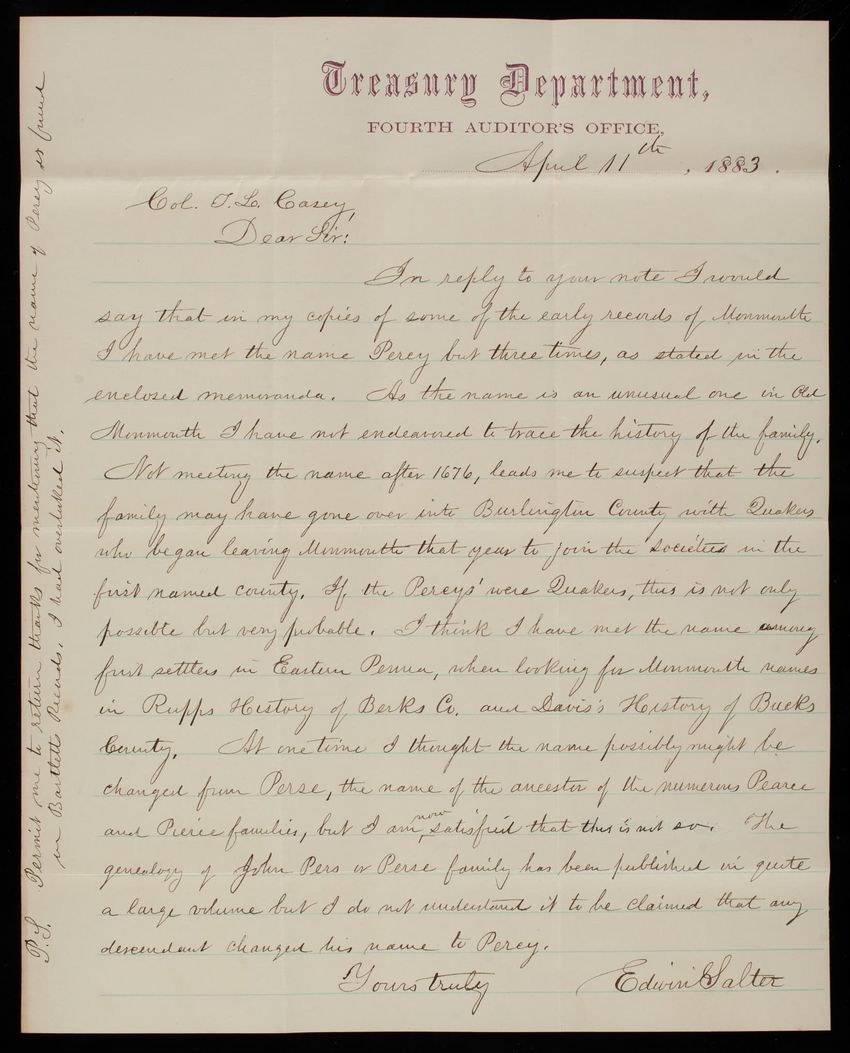 Treasury Department,
FOURTH AUDITOR'S OFFICE,
April 11th, 1883.
Col. T. L. Casey,
Dear Sir:
In reply to your note I would
say that in my copies of some of the early records of Monmouth
I have met the name Percy but three times, as stated in the
enclosed memoranda. As the name is an unusual one in Old
Monmouth I have not endeavored to trace the history of the family.
Not meeting the name after 1676, leads me to suspect that the
family may have gone over into Burlington County with Quakers
who began leaving Monmouth that year to join the societies in the
first named county. If the Percys' were Quakers, this is not only
possible but very probable. I think I have met the name among
first settlers in Eastern Penna, when looking for Monmouth names
in Rupps History of Berks Co. and Davis's History of Bucks
County. At one time I thought the name possibly might be
changed from Perse, the name of the ancestor of the numerous Pearce
and Pierce families, but I am now satisfied that this is not so. The
genealogy of John Pers or Perse family has been published in quite
a large volume but I do not understand it to be claimed that any
descendant changed his name to Percy.
Yours truly Edwin Salter
P.S. Permit me to return thanks for mentiong that the name of Percy is found
in Bartletts Records. I had overlooked it.